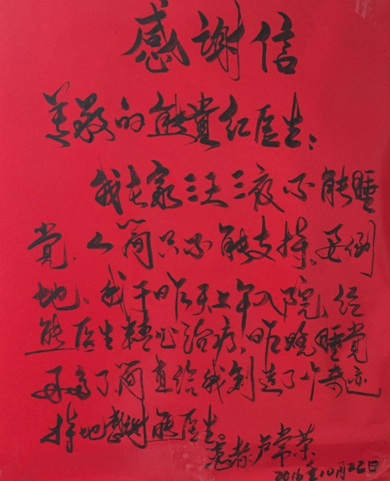 感谢信
尊敬的熊党红医生：
我在家三天三夜不能睡
觉，人简只不能支持，要倒
地，我于昨天上午入院，经
熊医生精心治疗，昨晚睡觉
好多了简直给我创造了个奇迹
特地感谢熊医生。
患者卢常荣
2016年10月22日